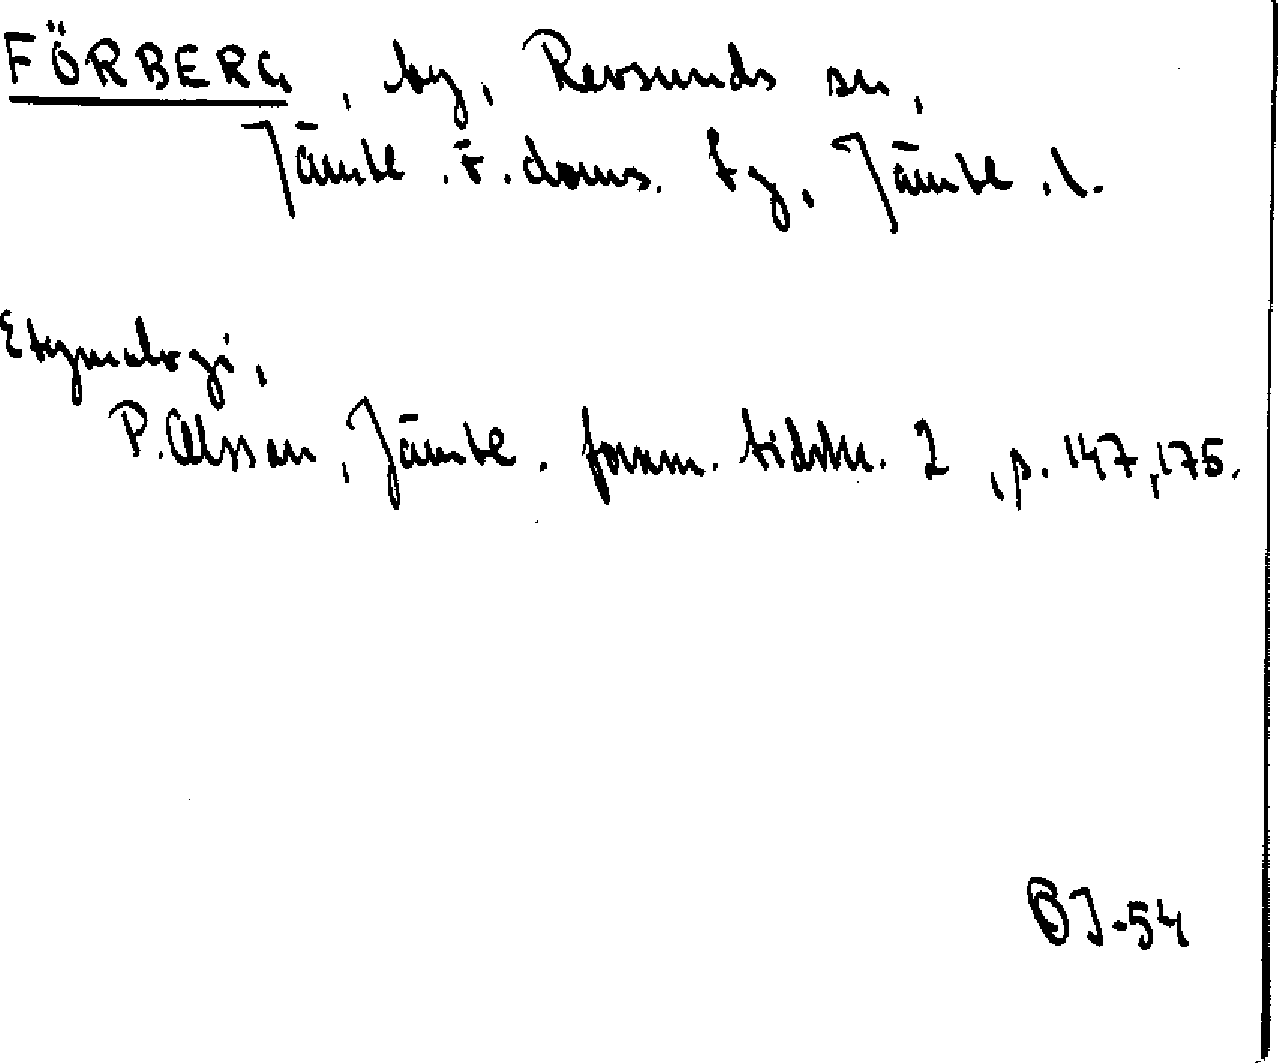 FÖRBERG, by, Revsunds sn,
Jämtl. ö. doms. tg, Jämtl. l.
Etymologi,
P. Olsson, Jämtl. fornm. tidskr. 2, p. 147, 175.
BJ-54